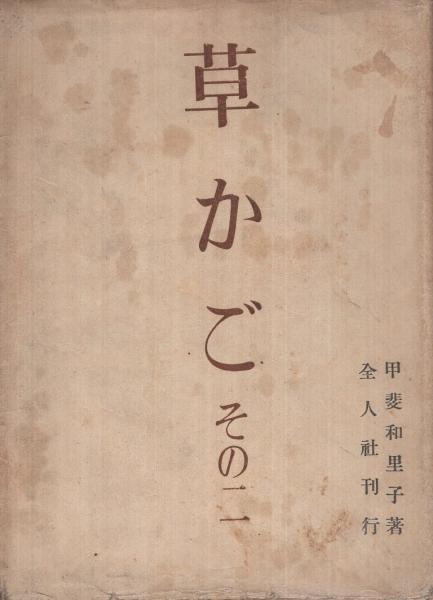 草かご その二
甲斐和里子著
全人社刊行